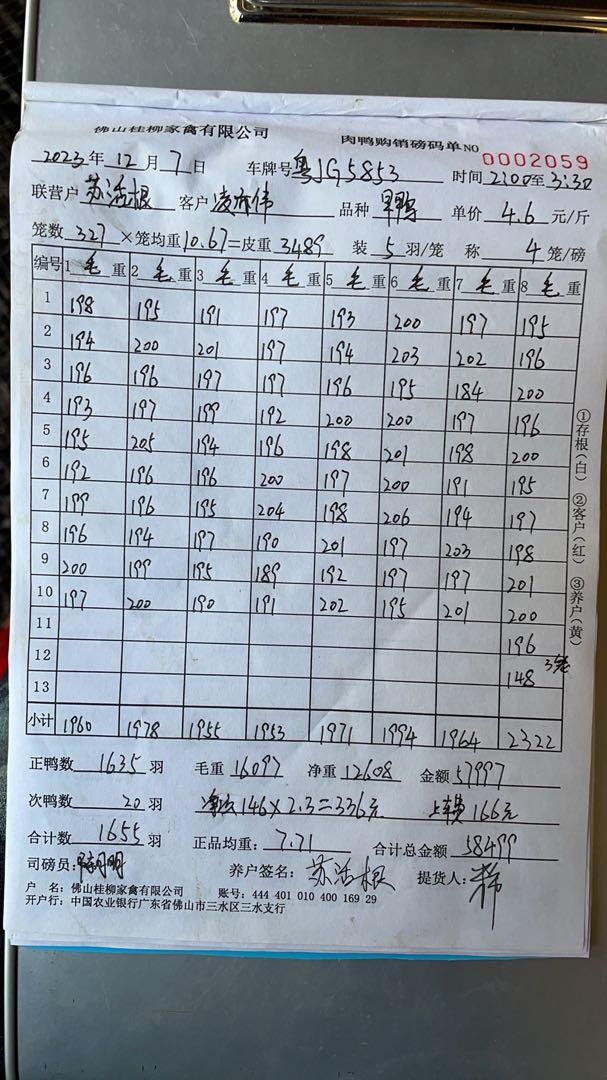 佛山桂柳家禽有限公司 肉鸭购销磅码单 NO 0002059
2023年 12月 7日 车牌号 粤JG5853 时间 2:00至3:30
联营户 苏活根 客户 凌 伟 品种 鸭 单价 4.6 元/斤
笼数 327 ×笼均重 10.67=皮重 3489 装 5 羽/笼 称 4 笼/磅
编号 1 毛 重 2 毛 重 3 毛 重 4 毛 重 5 毛 重 6 毛 重 7 毛 重 8 毛 重
1 198 195 191 197 193 200 197 195
2 194 200 201 197 194 203 202 196
3 196 196 197 197 196 195 184 200
4 193 197 199 192 200 200 197 196
5 195 205 194 196 198 201 198 200
6 192 196 196 200 197 200 191 195
7 199 196 195 204 198 206 194 197
8 196 194 197 190 201 197 203 198
9 200 199 195 189 192 197 197 201
10 197 200 190 191 202 195 201 200
11 196
12 148 3笼
13
小计 1960 1978 1955 1953 1971 1994 1964 2322
正鸭数 1635 羽 毛重 16097 净重 12608 金额 57997
次鸭数 20 羽 146×2.3=336元 上车费 166元
合计数 1655 羽 正品均重: 7.71 合计总金额 58499
司磅员: 明 养户签名: 苏活根 提货人:
户 名: 佛山桂柳家禽有限公司 账号: 444 401 010 400 169 29
开户行: 中国农业银行广东省佛山市三水区三水支行
①存根(白) ②客户(红) ③养户(黄)